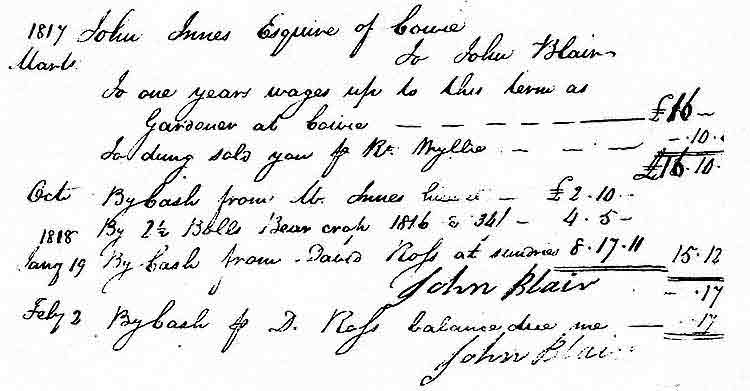 1817 John Innes Esquire of Cowie
Marts To John Blair
To one years wages up to this term as
Gardener at Cowie — — — — — £16 –
To dung sold you p Rt. Wyllie – – – – .10. –
£16.10.
Octr By Cash from Mr. Innes – £2.10 –
By 2½ Bolls Bear crop 1816 @ 34/ – 4.5 –
1818
Jany 19 By Cash from David Ross at sundries 8.17.11 15.12
John Blair – .17
Feby 2 By Cash p D. Ross balance due me — .17
John Blair